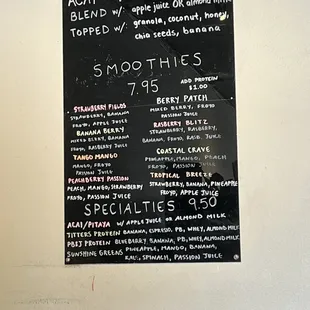 ACAI
BLEND w/: apple juice OR almond milk
TOPPED w/: granola, coconut, honey,
chia seeds, banana
SMOOTHIES
7.95
ADD PROTEIN
$1.00
STRAWBERRY FIELDS
STRAWBERRY, BANANA
FROYO, APPLE JUICE
BANANA BERRY
MIXED BERRY, BANANA
FROYO, APPLE JUICE
TANGO MANGO
MANGO, FROYO
PASSION JUICE
PEACHBERRY PASSION
PEACH, MANGO, STRAWBERRY
FROYO, PASSION JUICE
BERRY PATCH
MIXED BERRY, FROYO
PASSION JUICE
RASBERRY BLITZ
STRAWBERRY, RASBERRY,
BANANA, FROYO, JUICE
COASTAL CRAVE
PINEAPPLE, MANGO, PEACH
FROYO, PASSION JUICE
TROPICAL BREEZE
STRAWBERRY, BANANA, PINEAPPLE
FROYO, APPLE JUICE
SPECIALTIES 9.50
ACAI/PITAYA w/ APPLE JUICE or ALMOND MILK
JITTERS PROTEIN BANANA, ESPRESSO, PB, WHEY, ALMOND MILK
PB&J PROTEIN BLUEBERRY, BANANA, PB, WHEY, ALMOND MILK
SUNSHINE GREENS PINEAPPLE, MANGO, BANANA,
KALE, SPINACH, PASSION JUICE